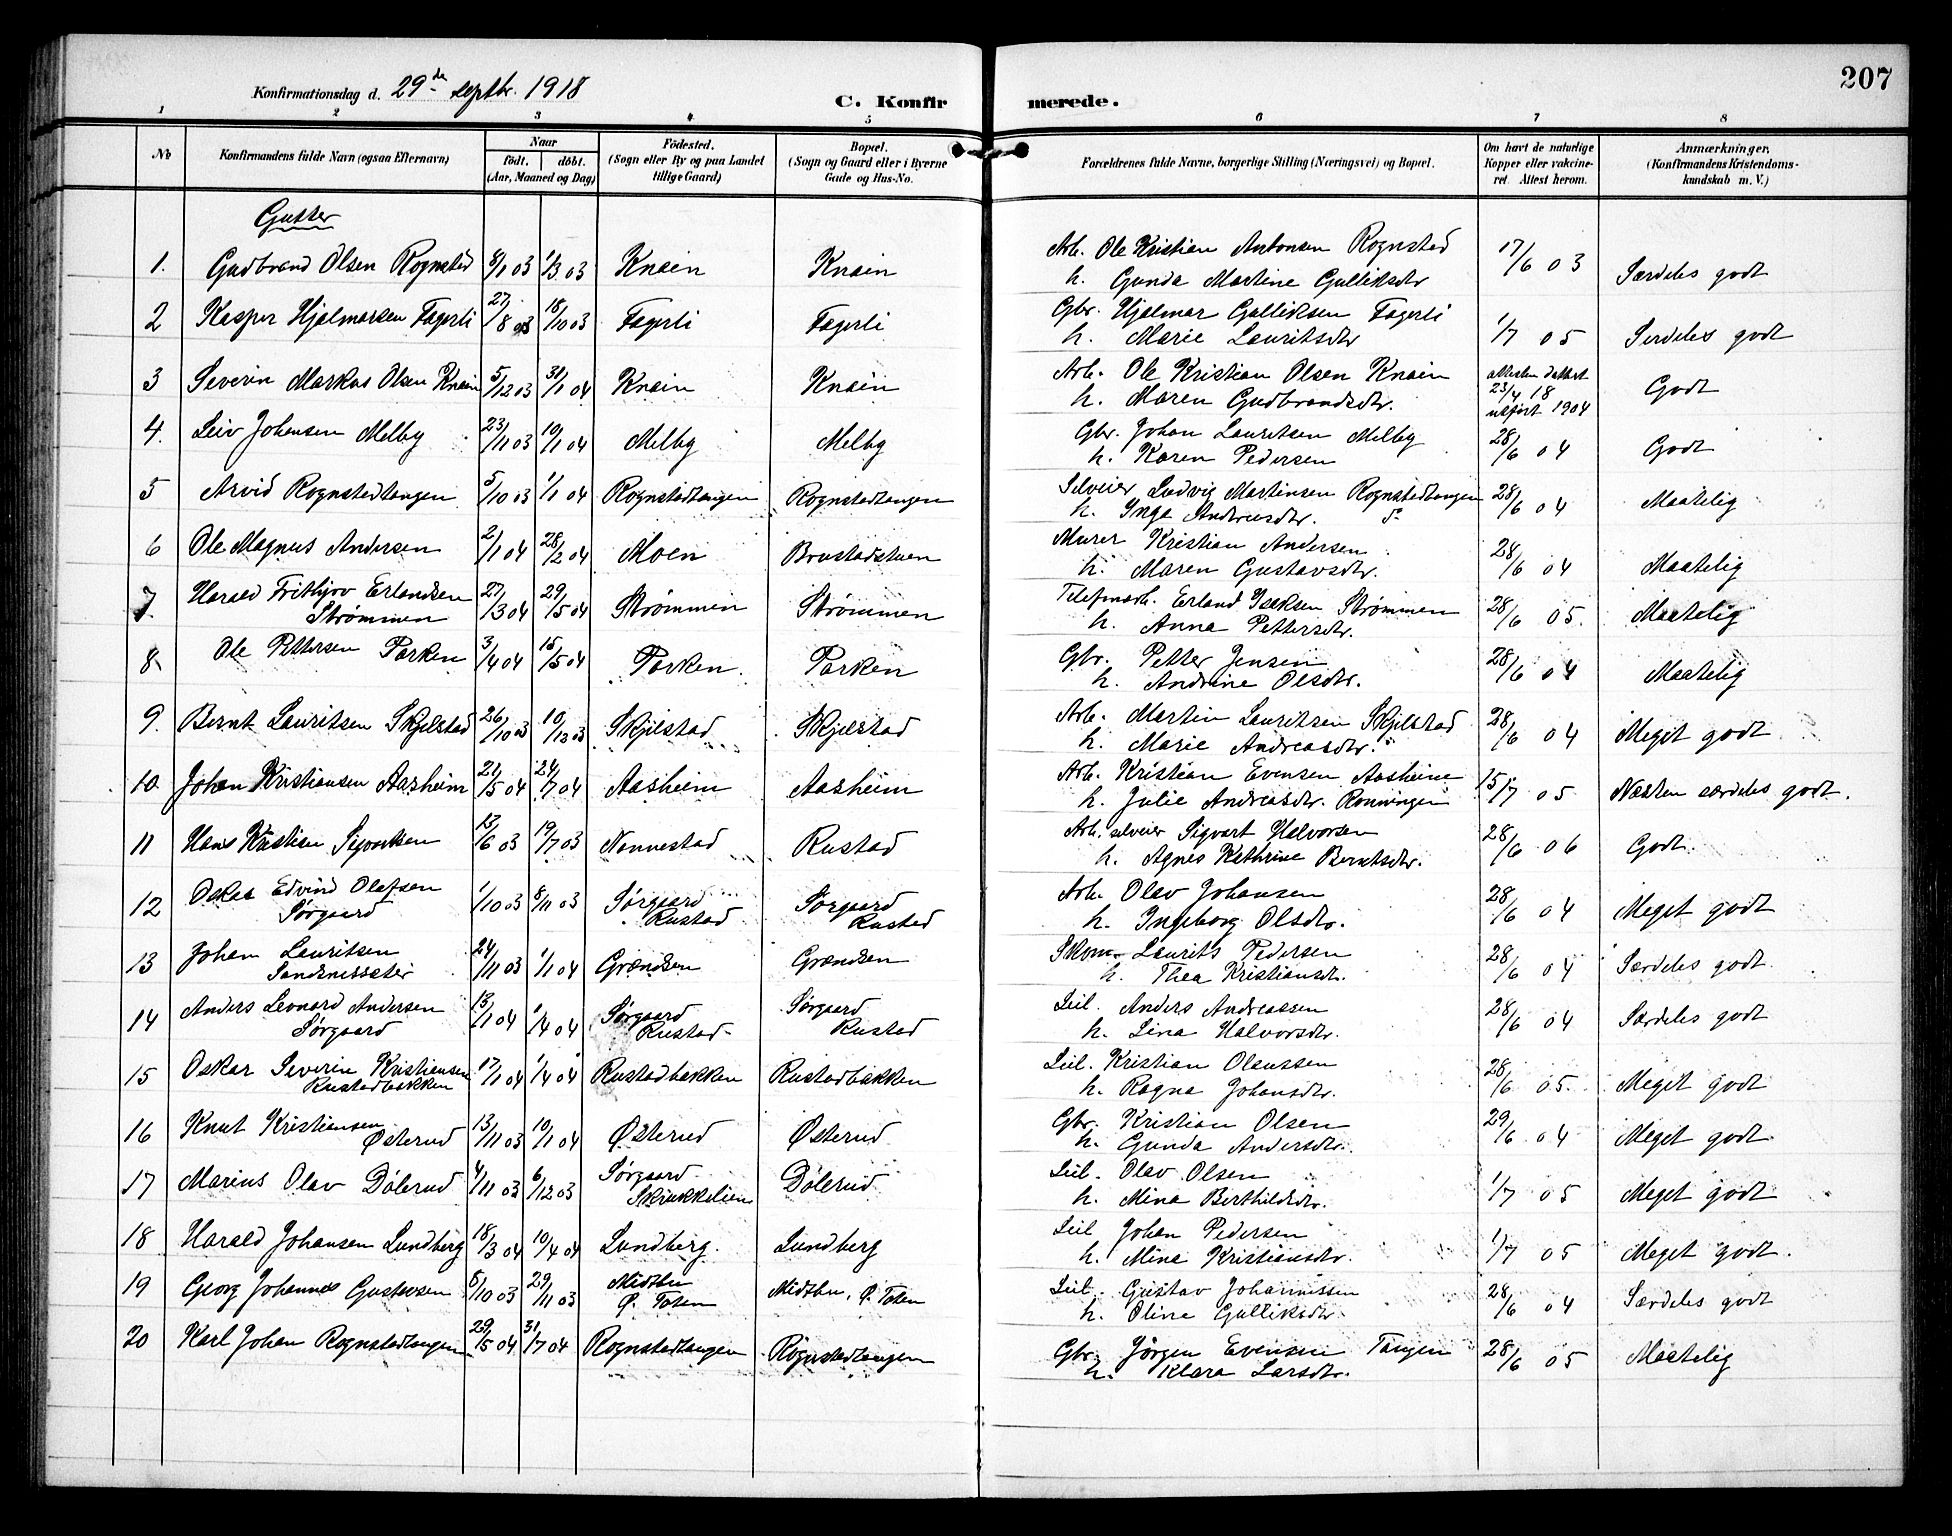 207
Konfirmationsdag d. 29de septbr. 1918
C. Konfirmerede.
1 2 3 4 5 6 7 8
No
Konfirmandens fulde Navn (ogsaa Efternavn)
Naar
födt. döbt.
(Aar, Maaned og Dag)
Födested.
(Sogn eller By og paa Landet
tillige Gaard)
Bopæl.
(Sogn og Gaard eller i Byerne
Gade og Hus-No.
Forældrenes fulde Navne, borgerlige Stilling (Næringsvei) og Bopæl.
Om havt de naturlige
Kopper eller vakcine-
ret. Attest herom.
Anmærkninger,
(Konfirmandens Kristendoms-
kundskab m. V.)
Gutter
1. Gudbrand Olsen Rognstad 8/1 03 1/3 03 Knain Knain Arb. Ole Kristian Antonsen Rognstad 17/6 03 Særdeles godt
h. Gunda Martine Gulliksdtr
2 Kasper Hjalmarsen Fagerli 27/8 03 18/10 03 Fagerli Fagerli Gbr. Hjalmar Gulliksen Fagerli 1/7 05 Serdeles godt
h. Marie Lauritsdtr
3 Severin Markus Olsen Knain 5/12 03 31/1 04 Knain Knain Arb. Ole Kristian Olsen Knain attesten dattert Godt
h. Maren Gudbrandsdtr. 23/4 18
utført 1904
4. Leiv Johansen Melby 23/11 03 10/1 04 Melby Melby Gbr. Johan Lauritsen Melby 28/6 04 Godt
h. Karen Pedersen
5 Arvid Rognstadtangen 5/10 03 1/1 04 Rognstadtangen Rognstadtangen Selveier Ludvig Martinsen Rognstadtangen 28/6 04 Maatelig
h. Inga Andreasdtr.
6 Ole Magnus Andersen 2/1 04 28/2 04 Moen Brustadstuen Murer Kristian Andersen 28/6 04 Maatelig
h. Maren Gustavsdtr.
7. Harald Frithjov Erlandsen 27/3 04 29/5 04 Strømmen Strømmen Telefonarb. Erland Isaksen Strømmen 28/6 05. Maatelig
Strømmen h. Anna Pettersdtr.
8. Ole Pettersen Parken 3/4 04 15/5 04 Parken. Parken Gbr. Petter Jensen 28/6 04 Maatelig
h. Andrine Olsdtr.
9. Bernt Lauritsen Skjelstad 26/10 03 10/12 03 Skjelstad Skjelstad Arb. Martin Lauritsen Skjelstad 28/6 04 Meget godt
h. Marie Andreasdtr.
10. Johan Kristiansen Aasheim 21/5 04 24/7 04 Aasheim Aasheim Arb. Kristian Evensen Aasheim 15/7 05 Næsten særdeles godt.
h. Julie Andreasdtr. Rønningen
11 Hans Kristian Sigvartsen 13/6 03 19/7 03 Nannestad Rustad Arb. selveier Sigvart Halvorsen 28/6 06 Godt.
h. Agnes Kathrine Berntsdtr.
12 Oskar Edvind Olafsen 1/10 03 8/11 03 Sørgaard Sørgaard Arb. Olav Johansen 28/6 04 Meget godt
Sørgaard Rustad Rustad h. Ingeborg Olsdtr.
13 Johan Lauritsen 24/11 03 1/11 04 Grændsen Grændsen Skom. Laurits Pedersen 28/6 04 Særdeles godt.
Sandnessæter h. Thea Kristiansdt.
14 Anders Leonard Andersen 13/1 04 1/4 04 Sørgaard Sørgaard Leil. Anders Andreassen 28/6 04 Særdeles godt
Sørgaard Rustad Rustad h. Lina Halvorsdtr.
15 Oskar Severin Kristiansen 17/1 04 1/4 04 Rustadbakken Rustadbakken Leil. Kristian Olaussen 28/6 05. Meget godt
Rustadbakken h. Ragna Johansdtr.
16 Knut Kristiansen 13/11 03 10/1 04 Østerud Østerud Gbr. Kristian Olsen 29/6 04 Meget godt.
Østerud h. Gunda Andersdtr.
17 Marius Olav Dölerud 4/11 03 6/12 03 Sørgaard Dölerud Leil. Olav Olsen 1/7 05 Meget godt
Skrukkelien h. Mina Berthildsdtr.
18 Harald Johansen Lundberg 18/3 04 10/4 04 Lundberg. Lundberg Leil Johan Pedersen 1/7 05 Meget godt.
h. Mina Kristiansdtr.
19 Georg Johannes Gustavsen 5/10 03 29/11 03 Midtbu Midtbu, Ø. Toten Leil. Gustav Johannissen 28/6 04 Særdeles godt
Ø. Toten h. Oline Gulliksdtr.
20 Karl Johan Rognstadtangen 29/5 04 31/7 04 Rognstadtangen Rognstadtangen Gbr. Jørgen Evensen Tangen 28/6 05 Maatelig
h. Klara Larsdtr.